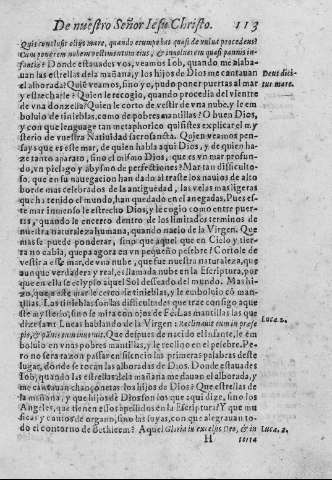 De nuestro Señor Iesu Christo. 113
Quis conclusit ostijs mare, quando erumpebat quasi de vulua procedens?
Cum ponerem nubem vestimentum eius, & inuoluerem quasi pannis in-
fantiæ? Donde estauades vos, veamos Iob, quando me alaba-
uan las estrellas dela mañana, y los hijos de Dios me cantauan
el alborada? Quiē veamos, sino yo, pudo poner puertas al mar
y estrecharle? Quien le recogio, quando procedia del vientre
de vna donzella? Quien le corto de vestir de vna nube, y le em
boluio de tinieblas, como de pobres mantillas? O buen Dios,
y con que lenguage tan metaphorico quisistes explicar el my
sterio de vuestra Natiuidad sacrosancta. Quien veamos pen-
says que es este mar, de quien habla aqui Dios, y de quien ha-
ze tanto aparato, sino el mismo Dios, que es vn mar profun-
do, vn pielago y abysmo de perfectiones? Mar tan difficulto-
so, que en su nauegacion han dado al traste los nauios de albo
borde mas celebrados de la antiguedad, las velas mas ligeras
que ha tenido el mundo, han quedado en el anegadas. Pues es-
te mar inmenso le estrecho Dios, y le cogio como entre puer-
tas, quando le encerro dentro de los limitados terminos de
nuestra naturaleza humana, quando nacio de la Virgen. Que
mas se puede ponderar, sino que aquel que en Cielo y tier-
ra no cabia, quepa agora en vn pequeño pesebre? Cortole de
vestir a este mar, de vna nube, que fue nuestra naturaleza, que
aunque verdadera y real, es llamada nube en la Escriptura, por
que en ella se eclypso aquel Sol desseado del mundo. Mas hi-
zo, que a este mar le cerco de tinieblas, y le emboluio cō man-
tillas. Las tinieblas son las difficultades que trae consigo aque
ste mysterio, sino se mira con ojos de Fé. Las mantillas las que
dize san Lucas hablando de la Virgen : Reclinauit eum in præse
pio, & pannis eum inuoluit. Que despues de nacido el Infante, le em
boluio en vnas pobres mantillas, y le reclino en el pesebre. Pe-
ro no sera razon passar en silencio las primeras palabras deste
lugar, donde se tocan las alboradas de Dios. Donde estauades
Iob, quando las estrellas de la mañana me dauan el alborada, y
me cantauan chançonetas los hijos de Dios? Que estrellas de
la mañana, y que hijos de Dios son los que aqui dize, sino los
Angeles, que tienen essos appellidos en la Escriptura? Y que mu
sicas y cantos de organo, sino las suyas, con que alegraron to-
do el contorno de Bethleem? Aquel Gloria in excelsis Deo, & in
H terra
Deus dici-
tur mare.
Luca. 2.
Luca. 2.